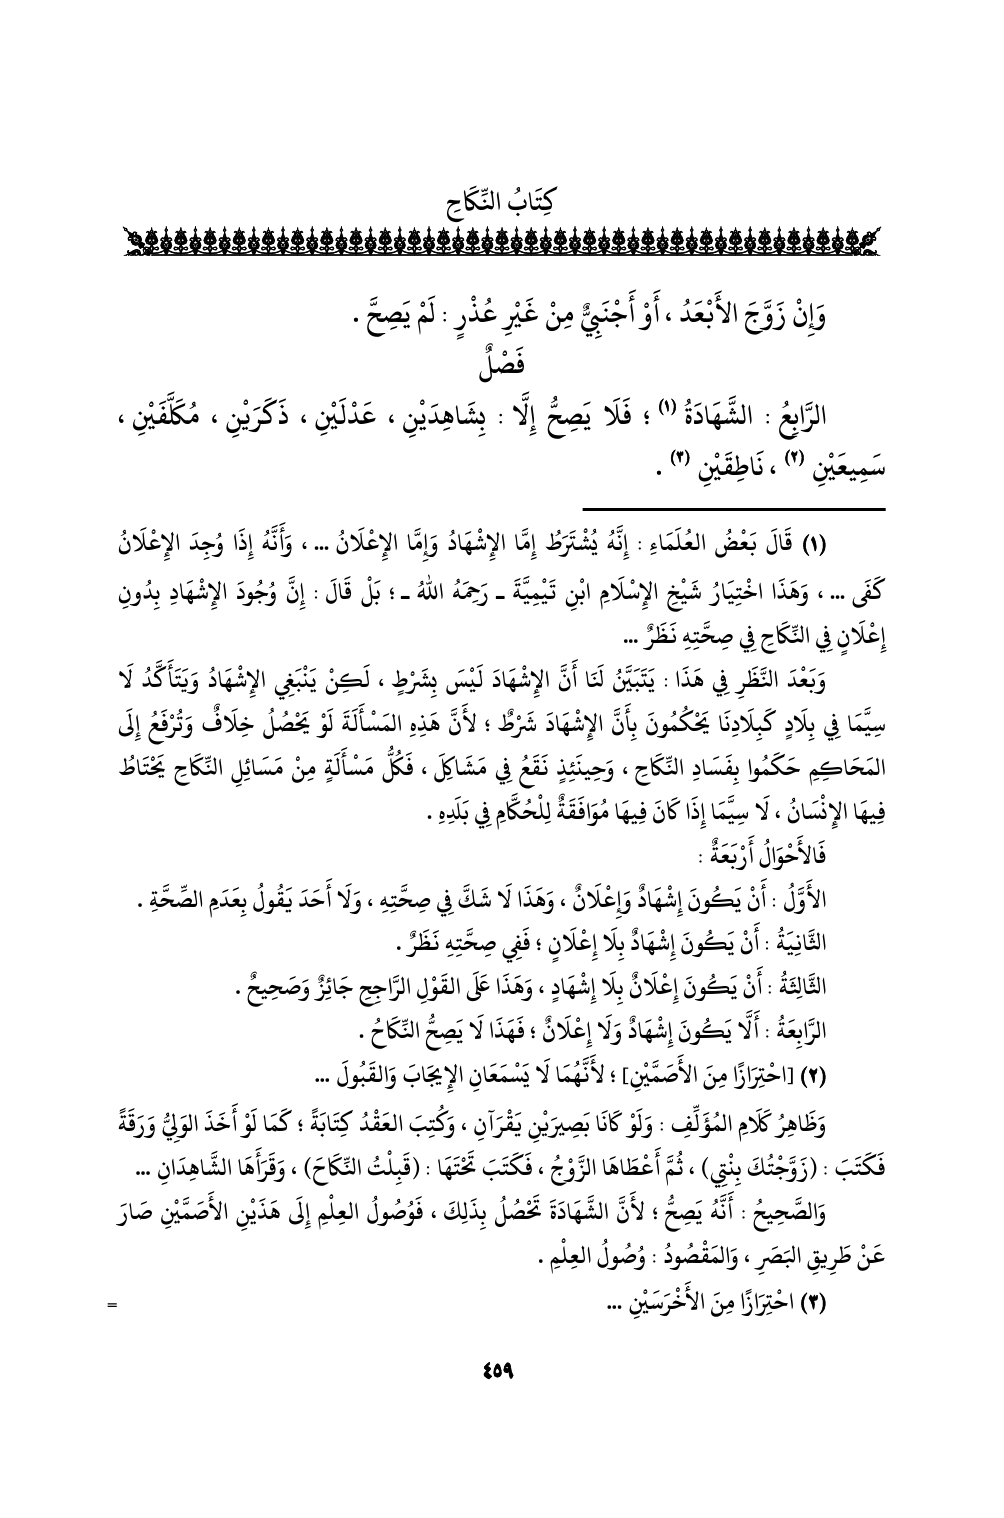 كِتَابُ النِّكَاحِ
وَإِنْ زَوَّجَ الأَبْعَدُ ، أَوْ أَجْنَبِيٌّ مِنْ غَيْرِ عُذْرٍ : لَمْ يَصِحَّ .
فَصْلٌ
الرَّابِعُ : الشَّهَادَةُ (١) ؛ فَلَا يَصِحُّ إِلَّا : بِشَاهِدَيْنِ ، عَدْلَيْنِ ، ذَكَرَيْنِ ، مُكَلَّفَيْنِ ،
سَمِيعَيْنِ (٢) ، نَاطِقَيْنِ (٣) .
(١) قَالَ بَعْضُ العُلَمَاءِ : إِنَّهُ يُشْتَرَطُ إِمَّا الإِشْهَادُ وَإِمَّا الإِعْلَانُ ... ، وَأَنَّهُ إِذَا وُجِدَ الإِعْلَانُ
كَفَى ... ، وَهَذَا اخْتِيَارُ شَيْخِ الإِسْلَامِ ابْنِ تَيْمِيَّةَ ـ رَحِمَهُ اللهُ ـ ؛ بَلْ قَالَ : إِنَّ وُجُودَ الإِشْهَادِ بِدُونِ
إِعْلَانٍ فِي النِّكَاحِ فِي صِحَّتِهِ نَظَرٌ ...
وَبَعْدَ النَّظَرِ فِي هَذَا : يَتَبَيَّنُ لَنَا أَنَّ الإِشْهَادَ لَيْسَ بِشَرْطٍ ، لَكِنْ يَنْبَغِي الإِشْهَادُ وَيَتَأَكَّدُ لَا
سِيَّمَا فِي بِلَادٍ كَبِلَادِنَا يَحْكُمُونَ بِأَنَّ الإِشْهَادَ شَرْطٌ ؛ لأَنَّ هَذِهِ المَسْأَلَةَ لَوْ يَحْصُلُ خِلَافٌ وَتُرْفَعُ إِلَى
المَحَاكِمِ حَكَمُوا بِفَسَادِ النِّكَاحِ ، وَحِينَئِذٍ نَقَعُ فِي مَشَاكِلَ ، فَكُلُّ مَسْأَلَةٍ مِنْ مَسَائِلِ النِّكَاحِ يَحْتَاطُ
فِيهَا الإِنْسَانُ ، لَا سِيَّمَا إِذَا كَانَ فِيهَا مُوَافَقَةٌ لِلْحُكَّامِ فِي بَلَدِهِ .
فَالأَحْوَالُ أَرْبَعَةٌ :
الأَوَّلُ : أَنْ يَكُونَ إِشْهَادٌ وَإِعْلَانٌ ، وَهَذَا لَا شَكَّ فِي صِحَّتِهِ ، وَلَا أَحَدَ يَقُولُ بِعَدَمِ الصِّحَّةِ .
الثَّانِيَةُ : أَنْ يَكُونَ إِشْهَادٌ بِلَا إِعْلَانٍ ؛ فَفِي صِحَّتِهِ نَظَرٌ .
الثَّالِثَةُ : أَنْ يَكُونَ إِعْلَانٌ بِلَا إِشْهَادٍ ، وَهَذَا عَلَى القَوْلِ الرَّاجِحِ جَائِزٌ وَصَحِيحٌ .
الرَّابِعَةُ : أَلَّا يَكُونَ إِشْهَادٌ وَلَا إِعْلَانٌ ؛ فَهَذَا لَا يَصِحُّ النِّكَاحُ .
(٢) [احْتِرَازًا مِنَ الأَصَمَّيْنِ] ؛ لأَنَّهُمَا لَا يَسْمَعَانِ الإِيجَابَ وَالقَبُولَ ...
وَظَاهِرُ كَلَامِ المُؤَلِّفِ : وَلَوْ كَانَا بَصِيرَيْنِ يَقْرَآنِ ، وَكُتِبَ العَقْدُ كِتَابَةً ؛ كَمَا لَوْ أَخَذَ الوَلِيُّ وَرَقَةً
فَكَتَبَ : (زَوَّجْتُكَ بِنْتِي) ، ثُمَّ أَعْطَاهَا الزَّوْجُ ، فَكَتَبَ تَحْتَهَا : (قَبِلْتُ النِّكَاحَ) ، وَقَرَأَهَا الشَّاهِدَانِ ...
وَالصَّحِيحُ : أَنَّهُ يَصِحُّ ؛ لأَنَّ الشَّهَادَةَ تَحْصُلُ بِذَلِكَ ، فَوُصُولُ العِلْمِ إِلَى هَذَيْنِ الأَصَمَّيْنِ صَارَ
عَنْ طَرِيقِ البَصَرِ ، وَالمَقْصُودُ : وُصُولُ العِلْمِ .
(٣) احْتِرَازًا مِنَ الأَخْرَسَيْنِ ... =
٤٥٩